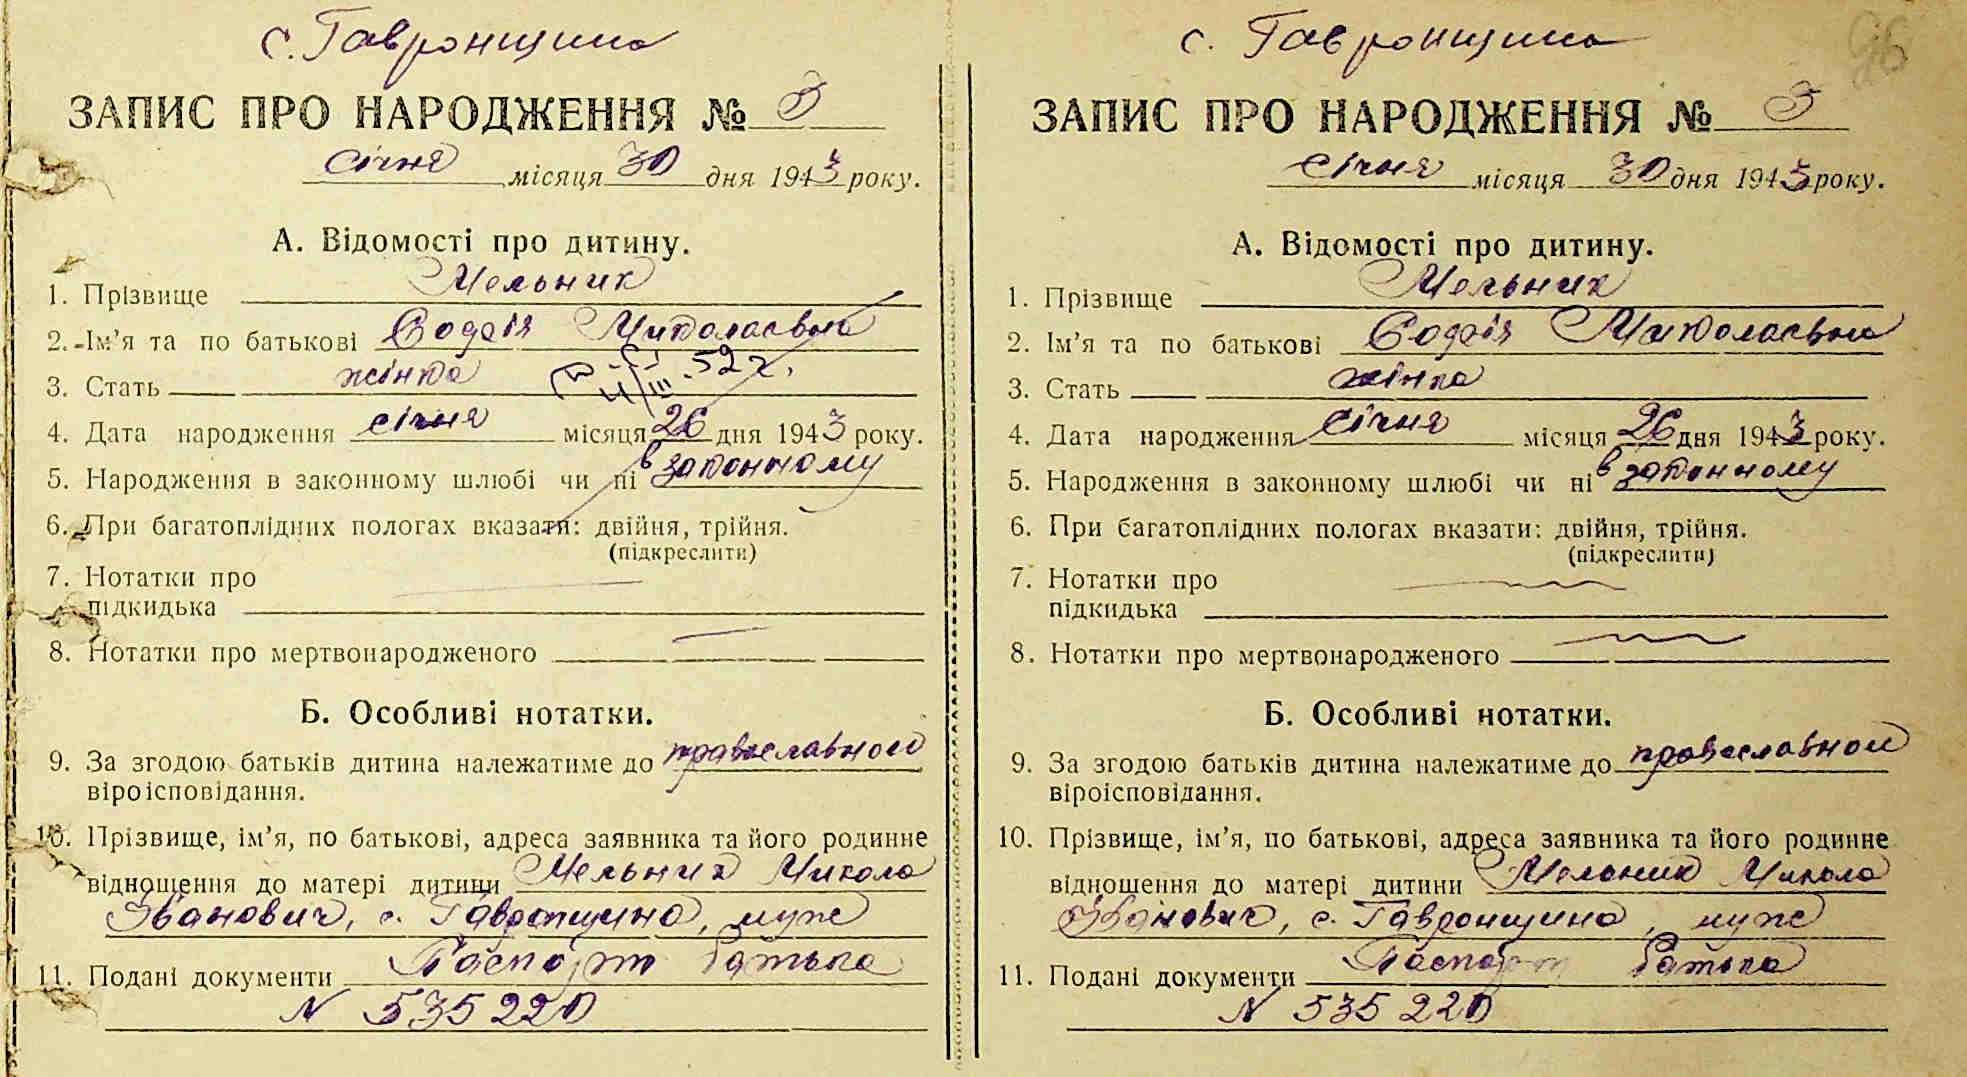 с. Гавронщина
ЗАПИС ПРО НАРОДЖЕННЯ № 3
січня місяця 30 дня 1943 року.
А. Відомості про дитину.
1. Прізвище Мельник
2. Ім'я та по батькові Софія Миколаївна
3. Стать жінка
4. Дата народження січня місяця 26 дня 1943 року.
5. Народження в законному шлюбі чи ні в законному
6. При багатоплідних пологах вказати: двійня, трійня.
(підкреслити)
7. Нотатки про
підкидька
8. Нотатки про мертвонародженого
Б. Особливі нотатки.
9. За згодою батьків дитина належатиме до православної
віроісповідання.
10. Прізвище, ім'я, по батькові, адреса заявника та його родинне
відношення до матері дитини Мельник Микола
Іванович, с. Гавронщина, муж
11. Подані документи Паспорт батька
N 535220
с. Гавронщина
96
ЗАПИС ПРО НАРОДЖЕННЯ № 3
січня місяця 30 дня 1943 року.
А. Відомості про дитину.
1. Прізвище Мельник
2. Ім'я та по батькові Софія Миколаївна
3. Стать жінка
4. Дата народження січня місяця 26 дня 1943 року.
5. Народження в законному шлюбі чи ні в законному
6. При багатоплідних пологах вказати: двійня, трійня.
(підкреслити)
7. Нотатки про
підкидька
8. Нотатки про мертвонародженого
Б. Особливі нотатки.
9. За згодою батьків дитина належатиме до православної
віроісповідання.
10. Прізвище, ім'я, по батькові, адреса заявника та його родинне
відношення до матері дитини Мельник Микола
Іванович, с. Гавронщина, муж
11. Подані документи Паспорт батька
N 535220